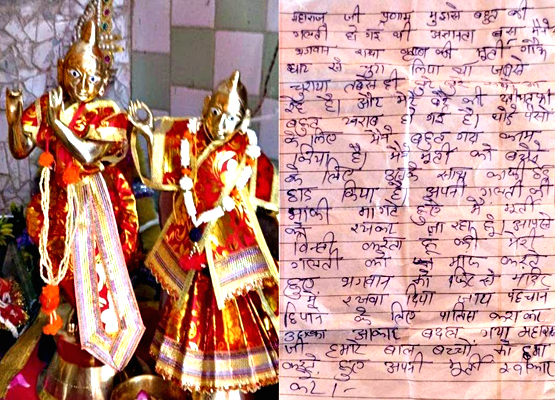 महाराज जी प्रणाम मुझसे बहुत बड़ी
गलती हो गई थी अज्ञानता बस मैंने
भगवान राधा कृष्ण की मूर्ती गऊ
घाट से चुरा लिया था जबसे
चुराया तबसे ही बुरे
रहे है। और मेरे बेटे की भी तबियत
बहुत खराब हो गई है। थोड़े पैसों
के लिए मैंने बहुत गंदा काम
किया है। मैंने मूर्ती को बेचने
के लिए उसके साथ काफी छेड़
छाड़ किया है अपनी गलती की
माफी मांगते हुए मैं मूर्ती
को रखकर जा रहा हूँ। आपसे
विन्ती करता हूं की मेरी
गलती को माफ करते
हुए भगवान को फिर से मंदिर
में रखवा दिया जाय पहचान
छिपाने के लिए पालिस कराकर
उसका आकार बदला गया महाराज
जी हमारे बाल बच्चों को क्षमा
करते हुए अपनी मूर्ती स्वीकार
करे।-